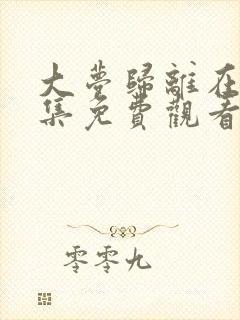 大夢歸離在
集免費觀看
零零九